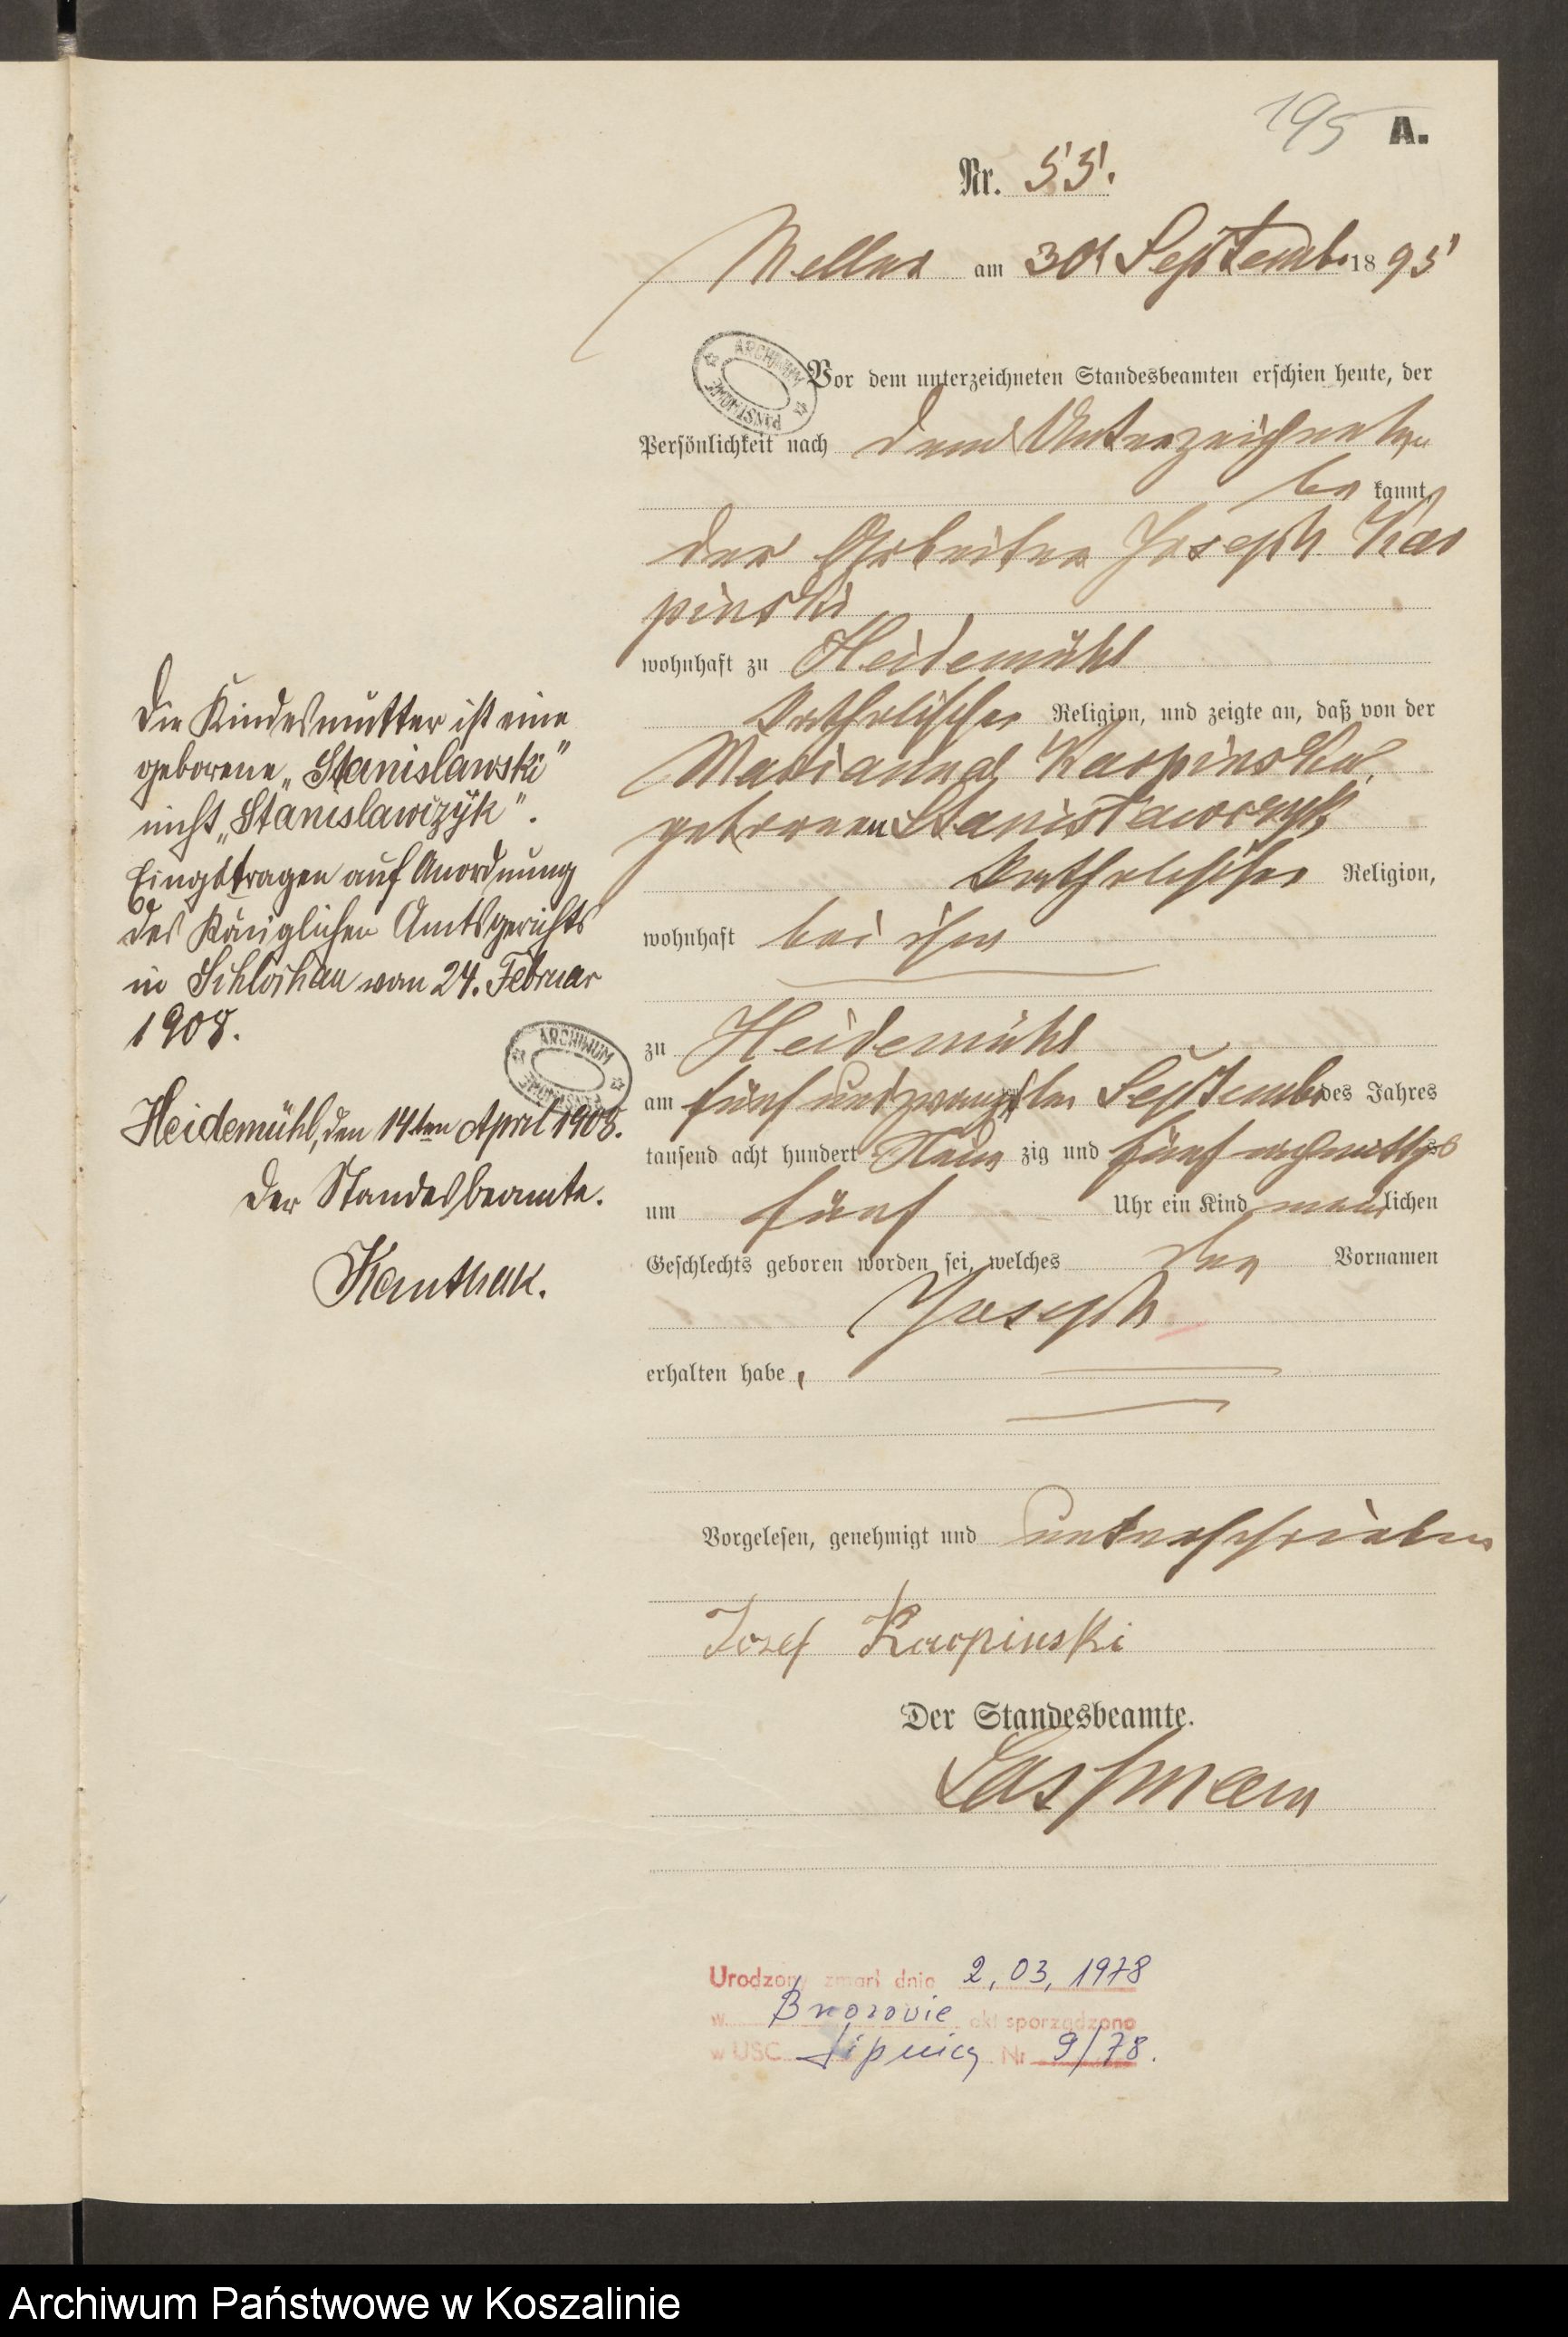 195 A.
Nr. 55.
Mellno am 30t Septemb. 1895
ARCHIWUM PAŃSTWOWE
Vor dem unterzeichneten Standesbeamten erschien heute, der
Persönlichkeit nach dem Unterzeichneten
be kannt,
der Arbeiter Joseph Kar
pinski
wohnhaft zu Heidemühl
katholischer Religion, und zeigte an, daß von der
Marianna Karpinska,
geborenen Stanislawczyk,
katholischer Religion,
wohnhaft bei ihm
zu Heidemühl
am fünfundzwanzigsten Septemb. des Jahres
tausend acht hundert Neun zig und fünf nachmittags
um fünf Uhr ein Kind männlichen
Geschlechts geboren worden sei, welches den Vornamen
Joseph
erhalten habe.
Vorgelesen, genehmigt und unterschrieben
Jozef Karpinski
Der Standesbeamte.
Lassmann
Die Kindesmutter ist eine
geborene „Stanislawski"
nicht „Stanislawizyk".
Eingetragen auf Anordnung
des Königlichen Amtsgerichts
in Schlochau vom 24. Februar
1908.
ARCHIWUM PAŃSTWOWE
Heidemühl, den 14ten April 1908.
Der Standesbeamte.
Kanthak.
Urodzony zmarł dnia 2,03,1978
w Brzozowie akt sporządzono
w USC Lipnicy Nr 9/78.
Archiwum Państwowe w Koszalinie